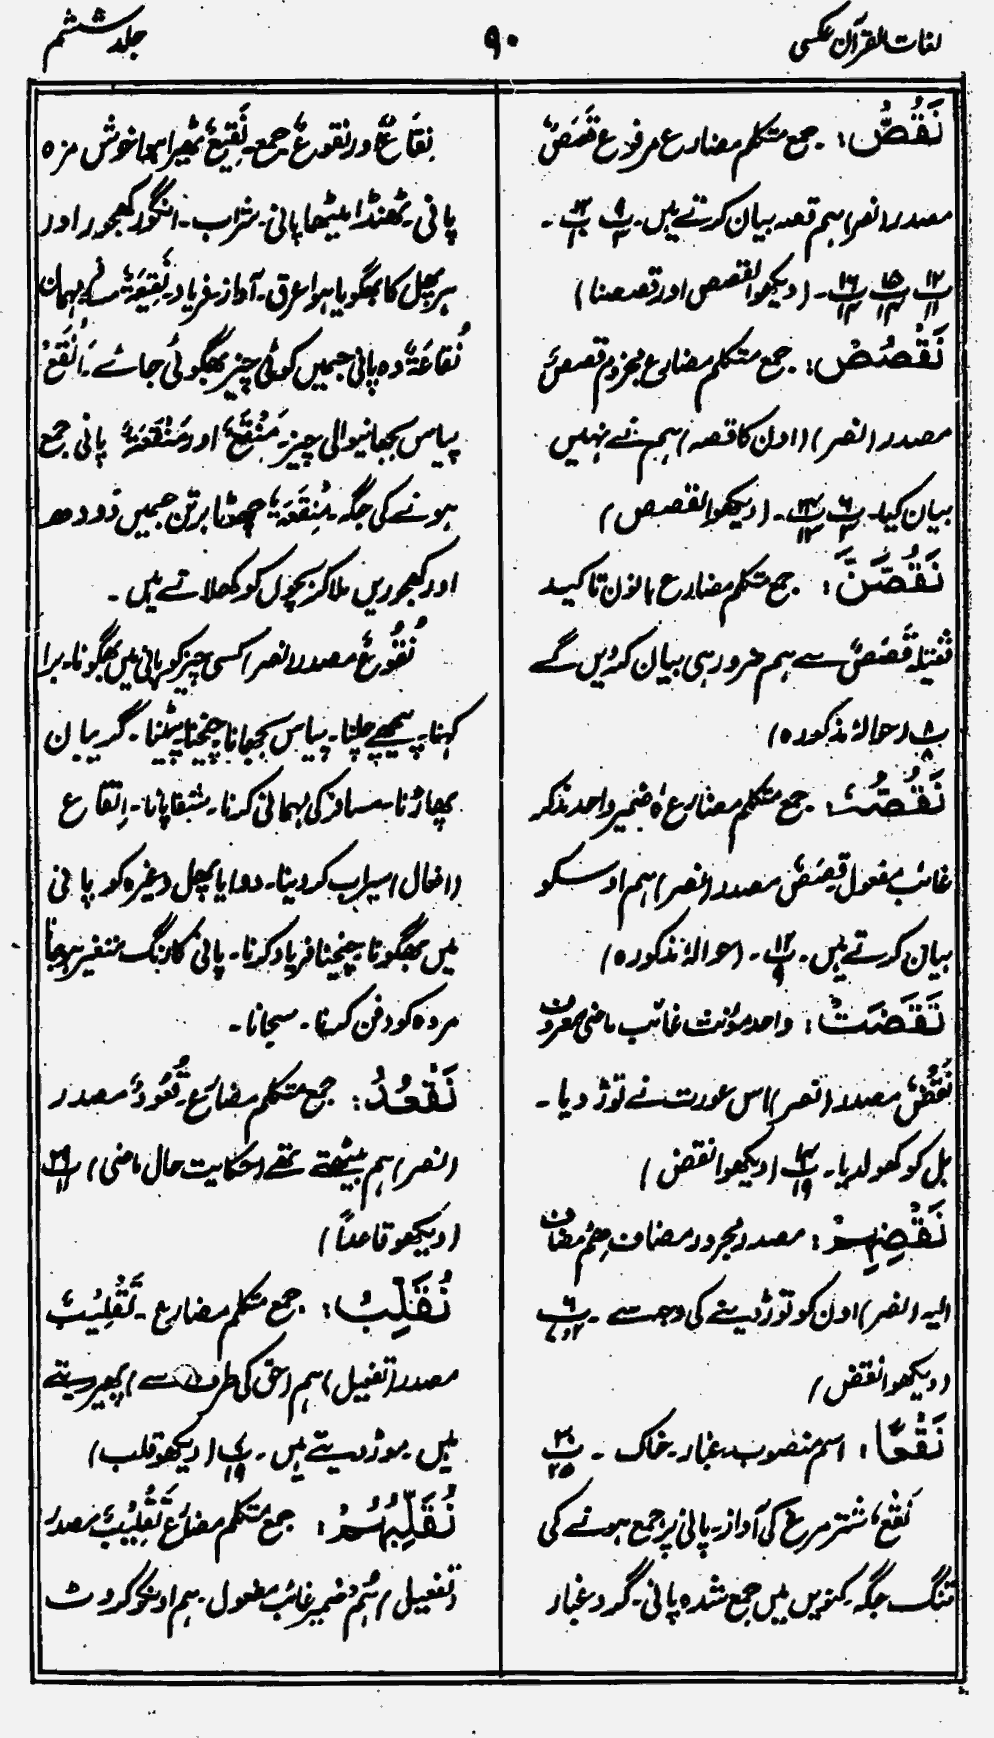 لغات القرآن عکسی
۹۰
جلد ششم
نَقُصُّ : جمع متکلم مضارع مرفوع قَصَصٌ
مصدر (نصر) ہم قصہ بیان کرتے ہیں۔ پ ۹/۳ پ ۱۲/۱۰ ۔
پ ۱۲/۱۱ پ ۱۵/۱۳ پ ۱۶/۱۴ ۔ (دیکھو القصص اور قصصنا)
نَقْصُصْ : جمع متکلم مضارع مجزوم قصصٌ
مصدر (نصر) (اون کا قصہ) ہم نے نہیں
بیان کیا۔ پ ۶/۳ پ ۲۴/۱۳ ۔ (دیکھو القصص)
نَقُصَّنَّ : جمع متکلم مضارع بانون تاکید
ثقیلہ قَصَصٌ سے ہم ضرور ہی بیان کریں گے
پ ۸/۸ (حوالۂ مذکورہ)
نَقُصُّہٗ : جمع متکلم مضارع ہٗ ضمیر واحد مذکر
غائب مفعول قَصَصٌ مصدر (نصر) ہم اوسکو
بیان کرتے ہیں۔ پ ۱۲/۹ ۔ (حوالۂ مذکورہ)
نَقَضَتْ : واحد مؤنث غائب ماضی معروف
نَقْضٌ مصدر (نصر) اس عورت نے توڑ دیا۔
بل کو کھولدیا۔ پ ۱۴/۱۹ (دیکھو انقض)
نَقْضِہِمْ : مصدر مجرور مضاف ہم مضاف
الیہ (نصر) اون کو توڑ دینے کی وجہ سے ۔ پ ۶/۲،۷
(دیکھو انقض)
نَقْعًا : اسم منصوب۔ غبار۔ خاک ۔ پ ۳۰/۲۵
نَقْعٌ شتر مرغ کی آواز۔ پانی پر جمع ہونے کی
تنگ جگہ۔ کنویں میں جمع شدہ پانی۔ گرد غبار
نِقَاعٌ اور نقوعٌ جمع۔ نَقِیعٌ ٹھیرا ہوا خوش مزہ
پانی۔ ٹھنڈا میٹھا پانی۔ شراب۔ انگور کھجور اور
ہر پھل کا بھگویا ہوا عرق۔ آواز۔ فریاد۔ نَقِیعَۃٌ مہمان
نُقَاعَۃٌ وہ پانی جسمیں کوئی چیز بھگوئی جائے۔ اَنْقَعُ
پیاس بجھانیوالی چیز۔ مَنْقَعٌ اور مَنْقَعَۃٌ پانی جمع
ہونے کی جگہ۔ مِنْقَعَۃٌ چھوٹا برتن جسمیں دودھ
اور کھجوریں ملا کر بچوں کو کھلاتے ہیں ۔
نُقُوعٌ مصدر (نصر) کسی چیز کو پانی میں بھگونا۔ برا
کہنا۔ پیچھے چلنا۔ پیاس بجھانا چیخنا پیٹنا۔ گریبان
پھاڑنا۔ مسافر کی مہمانی کرنا۔ شفا پانا۔ اِنقاع
(افعال) سیراب کر دینا۔ دوا یا پھل وغیرہ کو پانی
میں بھگونا چیخنا فریاد کرنا۔ پانی کا رنگ متغیر ہوجانا
مردہ کو دفن کرنا۔
نَقْعُدُ : جمع متکلم مضارع۔ قُعُودٌ مصدر
(نصر) ہم بیٹھتے تھے (حکایت حال ماضی) پ ۲۹/۱۱
(دیکھو قاعداً)
نُقَلِّبُ : جمع متکلم مضارع ۔ تَقْلِیْبٌ
مصدر (تفعیل) ہم (حق کی طرف سے) پھیر دیتے
ہیں ۔ موڑ دیتے ہیں ۔ پ ۷/۱۹ (دیکھو قلب)
نُقَلِّبُہُمْ : جمع متکلم مضارع تَقْلِیْبٌ مصدر
(تفعیل) ہُمْ ضمیر غائب مفعول۔ ہم اونکو کروٹ